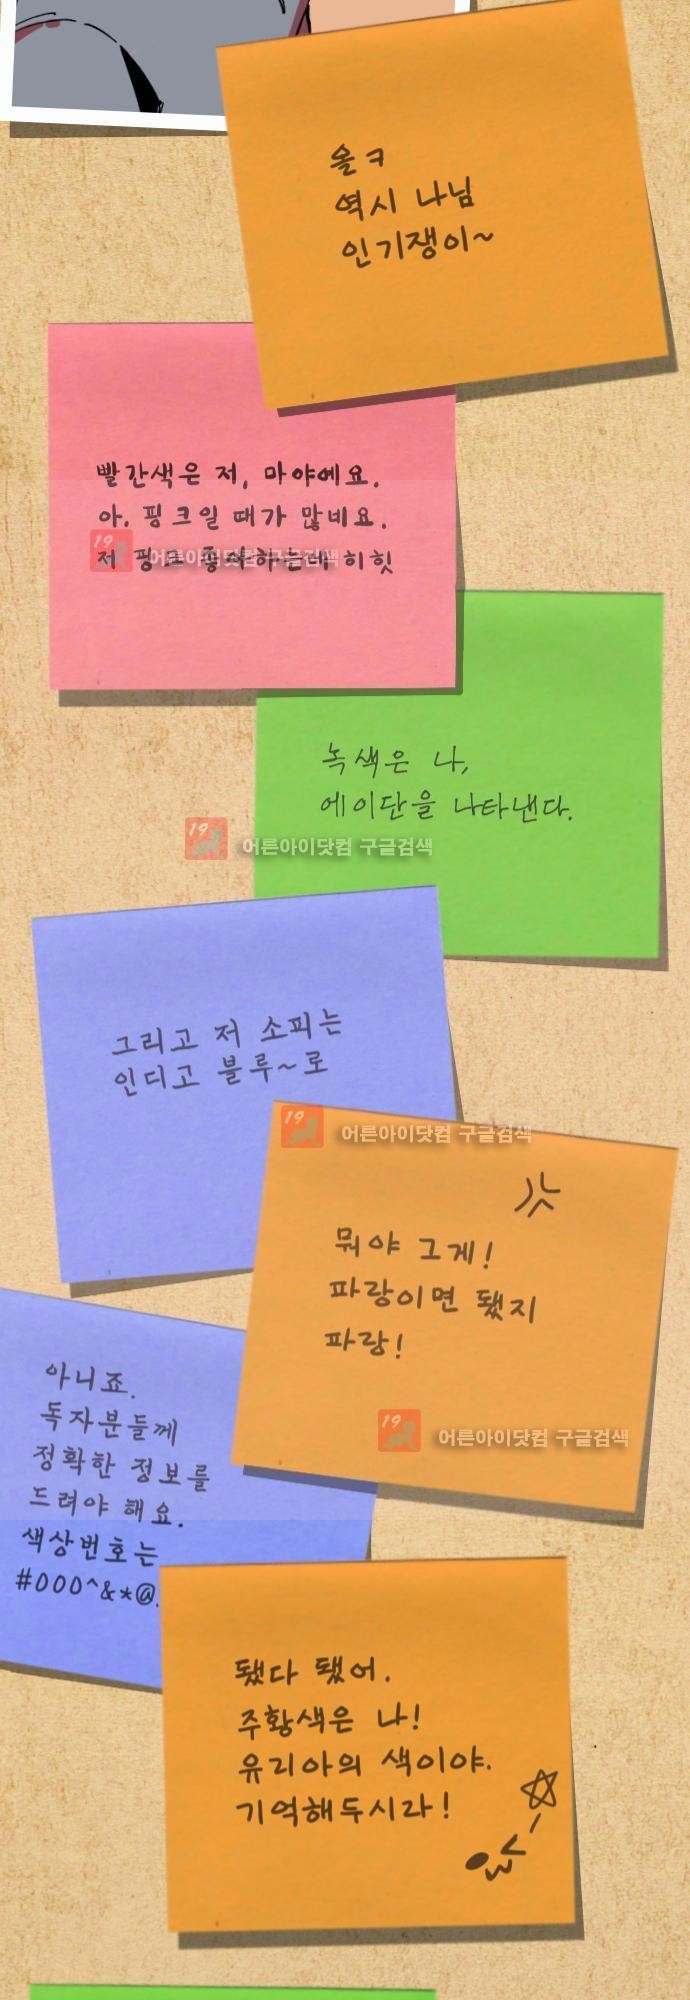 올ㅋ
역시 나님
인기쟁이~
빨간색은 저, 마야예요.
아, 핑크일 때가 많네요.
저 핑크 좋아하는데 히힛
19 어른아이닷컴 구글검색
녹색은 나,
에이단을 나타낸다.
19 어른아이닷컴 구글검색
그리고 저 소피는
인디고 블루~로
19 어른아이닷컴 구글검색
뭐야 그게!
파랑이면 됐지
파랑!
아니죠.
독자분들께
정확한 정보를
드려야 해요.
색상번호는
#000^&*@.
19 어른아이닷컴 구글검색
됐다 됐어.
주황색은 나!
유리아의 색이야.
기억해두시라!